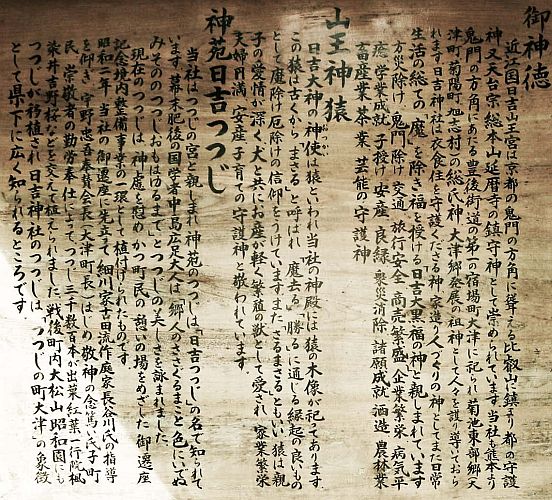 御神徳
近江国日吉山王宮は京都の鬼門の方角に聳える比叡山に鎮まり都の守護
神又天台宗総本山延暦寺の鎮守神として崇められています。当社も熊本より
鬼門の方角にあたる豊後街道の第一の宿場町大津に祀られ菊池東部郷大
津町菊陽町旭志村の総氏神大津郷発展の祖神として人々を護り導いておら
れます日吉神社は衣食住を守護くださる神家造り人づくりの神としてまた日常
生活の総ての「魔」を除き福を授ける日吉大黒福の神と親しまれています
方災除け、鬼門除け 交通 旅行安全 商売繁盛 企業繁栄 病気平
癒 学業成就 子授け 安産 良縁 衆災消除 諸願成就 酒造 農林業
畜産業 茶業 芸能の守護神
山王神猿
日吉大神の神使は猿といわれ当社の神殿には猿の木像が祀ってあります
この猿は古くから「まさる」と呼ばれ「魔去る」「勝る」に通じる縁起の良いもの
として魔除け厄除けの信仰をうけていますまたさるまさるともいい猿は親
子の愛情が深く犬と共にお産が軽く繁殖の獣として愛され家業繁栄
夫婦円満 安産 子育ての守護神と敬われています
神苑日吉つつじ
当社はつつじの宮と親しまれ神苑のつつじは「日吉つつじ」の名で知られて
います。幕末肥後の国学者中島広足大人は「郷人のささぐるまこと色にいでぬ
みそののつつじおもはゆるまで」とつつじの美しさを詠まれました
現在のつつじは神慮を慰めかつ町民の憩いの場をめざした御遷座
記念境内整備事業の一環として植付けられたものです。
昭和二年当社の御遷座に先立って細川家古田流作庭家長谷川氏の指導
を仰ぎ、宇野忠吾奉賛会長(大津町長)はじめ敬神の念篤い氏子町
民崇敬者の勤労奉仕によってつつじ三千数百本が出葉紅葉一行院楓
染井吉野桜などを交えて植えられました。戦後町内大松山昭和園にも
つつじが移植され日吉神社のつつじは、つつじの町大津の象徴
として県下に広く知られるところです。